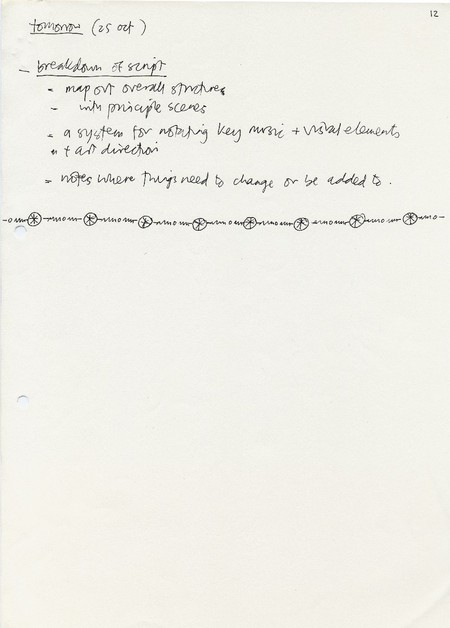 12
tomorrow (25 oct)
- breakdown of script
- map out overall structures
- with principle scenes
- a system for notating key music + visual elements
" + art direction
- notes where things need to change or be added to.